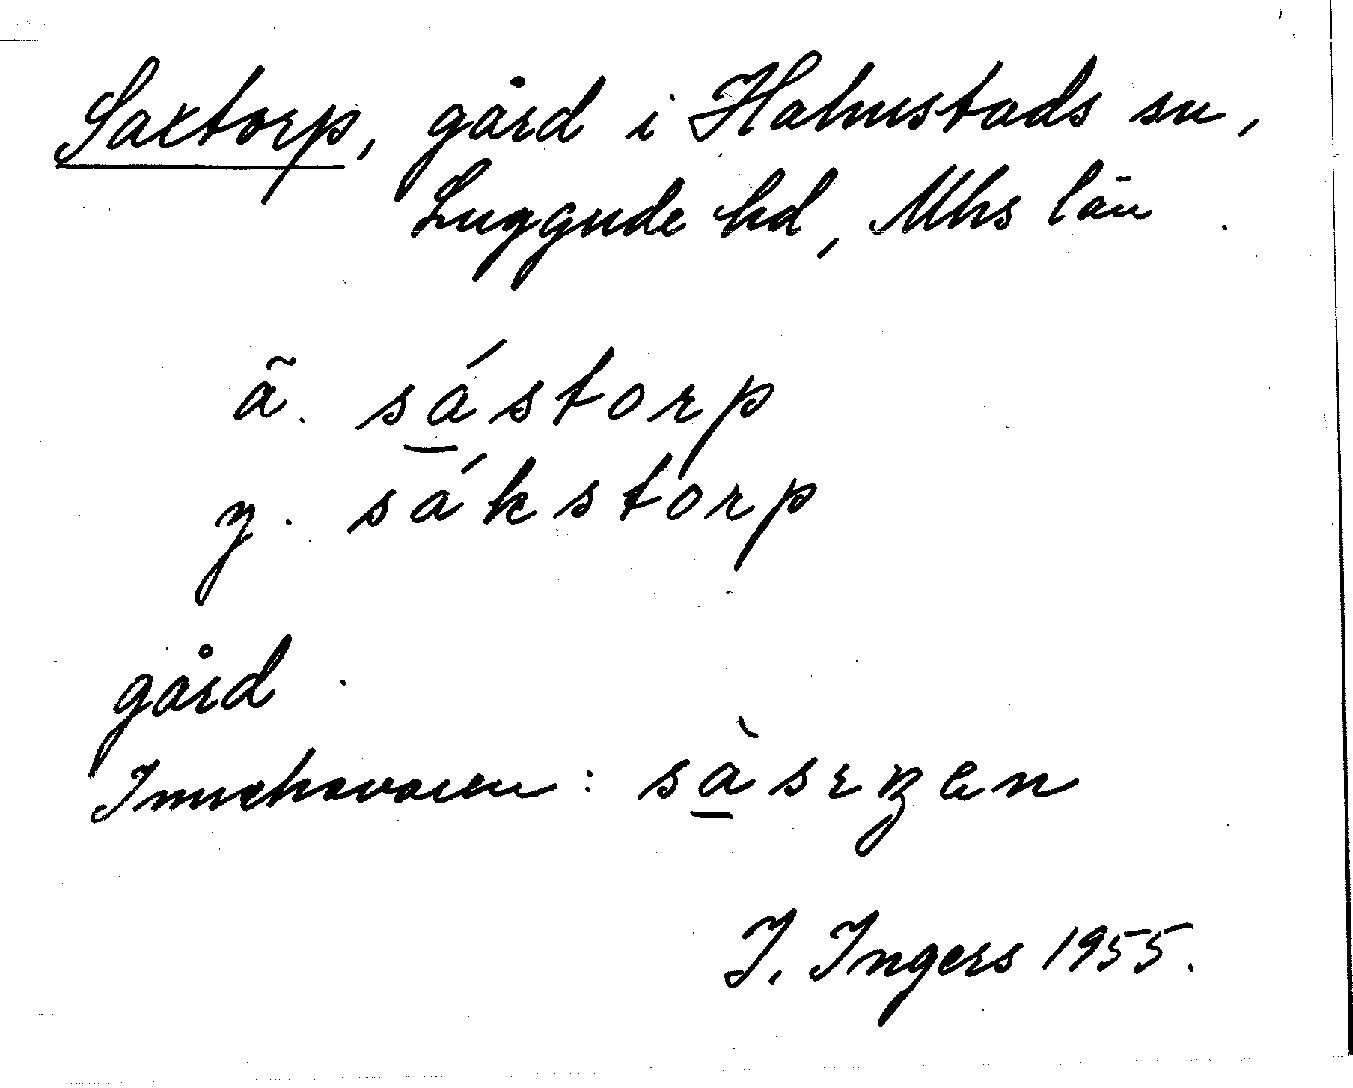 Saxtorp, gård i Halmstads sn,
Luggude hd, Mhs län
ä. sá̱storp
y. sákstorp
gård
Innehavaren:
I. Ingers 1955.